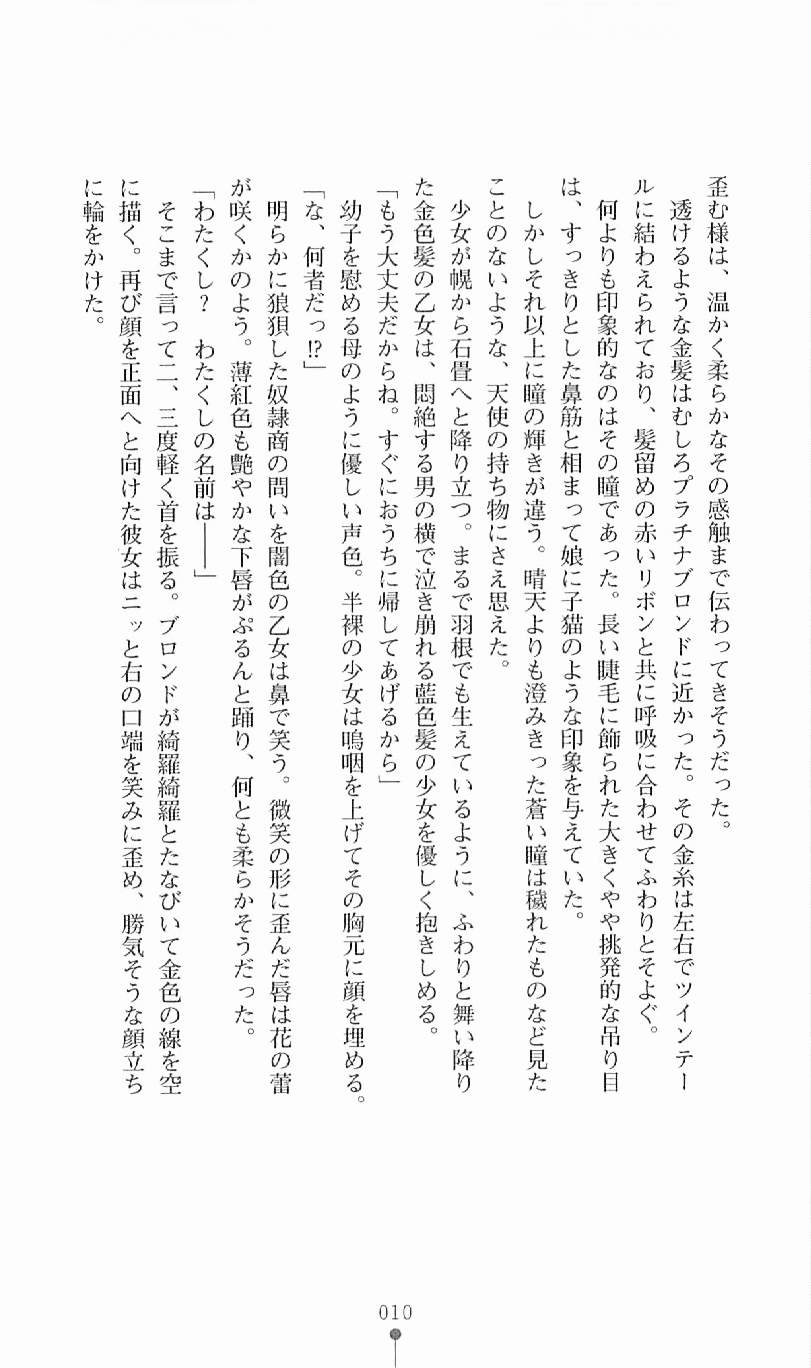 歪む様は、温かく柔らかなその感触まで伝わってきそうだった。
　透けるような金髪はむしろプラチナブロンドに近かった。その金糸は左右でツインテー
ルに結わえられており、髪留めの赤いリボンと共に呼吸に合わせてふわりとそよぐ。
　何よりも印象的なのはその瞳であった。長い睫毛に飾られた大きくやや挑発的な吊り目
は、すっきりとした鼻筋と相まって娘に子猫のような印象を与えていた。
　しかしそれ以上に瞳の輝きが違う。晴天よりも澄みきった蒼い瞳は穢れたものなど見た
ことのないような、天使の持ち物にさえ思えた。
　少女が幌から石畳へと降り立つ。まるで羽根でも生えているように、ふわりと舞い降り
た金色髪の乙女は、悶絶する男の横で泣き崩れる藍色髪の少女を優しく抱きしめる。
「もう大丈夫だからね。すぐにおうちに帰してあげるから」
　幼子を慰める母のように優しい声色。半裸の少女は嗚咽を上げてその胸元に顔を埋める。
「な、何者だっ!?」
　明らかに狼狽した奴隷商の問いを闇色の乙女は鼻で笑う。微笑の形に歪んだ唇は花の蕾
が咲くかのよう。薄紅色も艶やかな下唇がぷるんと踊り、何とも柔らかそうだった。
「わたくし？　わたくしの名前は――」
　そこまで言って二、三度軽く首を振る。ブロンドが綺羅綺羅とたなびいて金色の線を空
に描く。再び顔を正面へと向けた彼女はニッと右の口端を笑みに歪め、勝気そうな顔立ち
に輪をかけた。
010